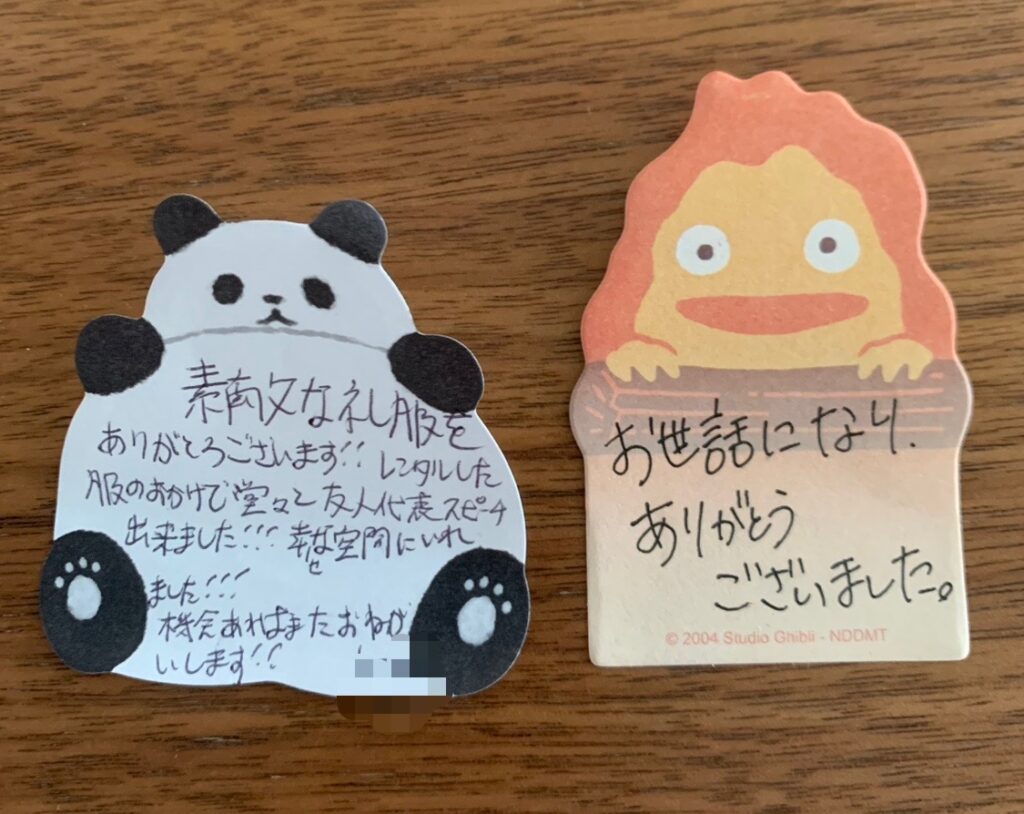 素敵な礼服を
ありがとろございます!!レンタルした
服のおかげで堂々と友人代表スピーチ
出来ました!!!幸せな空間にいれ
ました!!!
機会あればまたおねが
いします!!
お世話になり、
ありがとう
ございました。
© 2004 Studio Ghibli - NDDMT